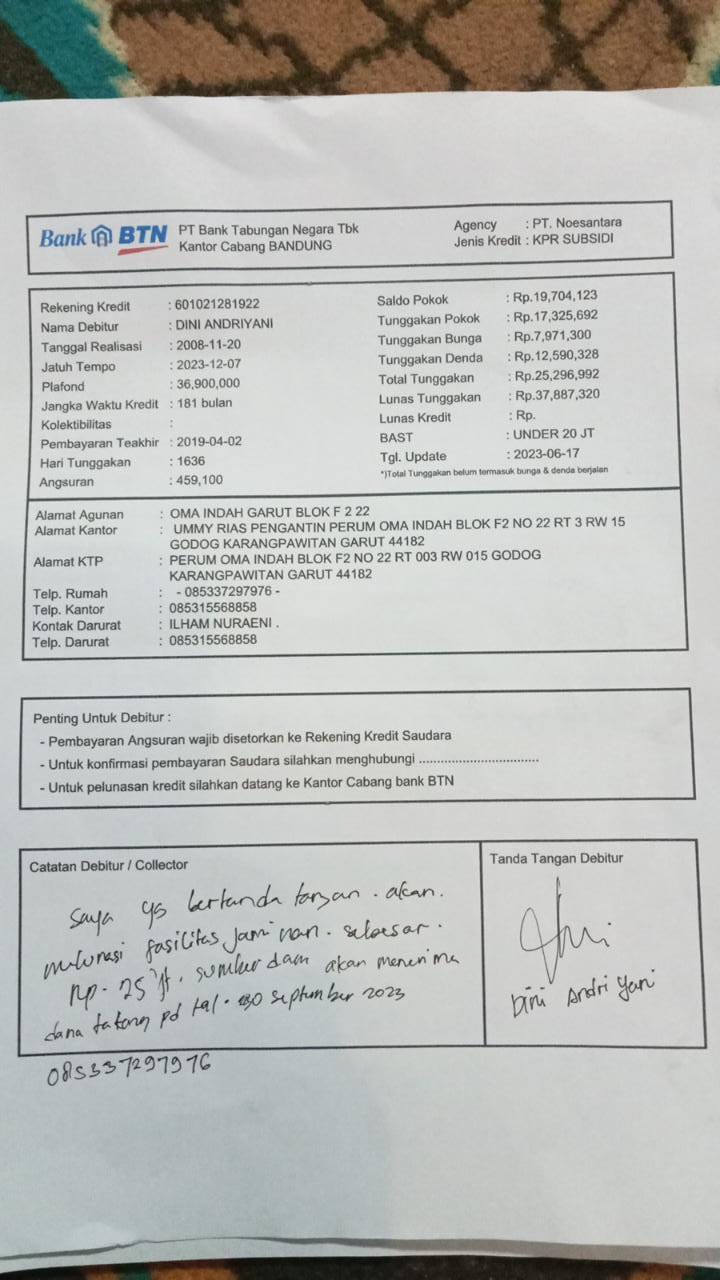 Bank BTN
PT Bank Tabungan Negara Tbk
Kantor Cabang BANDUNG
Agency : PT. Noesantara
Jenis Kredit : KPR SUBSIDI
Rekening Kredit : 601021281922
Nama Debitur : DINI ANDRIYANI
Tanggal Realisasi : 2008-11-20
Jatuh Tempo : 2023-12-07
Plafond : 36,900,000
Jangka Waktu Kredit : 181 bulan
Kolektibilitas :
Pembayaran Teakhir : 2019-04-02
Hari Tunggakan : 1636
Angsuran : 459,100
Saldo Pokok : Rp.19,704,123
Tunggakan Pokok : Rp.17,325,692
Tunggakan Bunga : Rp.7,971,300
Tunggakan Denda : Rp.12,590,328
Total Tunggakan : Rp.25,296,992
Lunas Tunggakan : Rp.37,887,320
Lunas Kredit : Rp.
BAST : UNDER 20 JT
Tgl. Update : 2023-06-17
*)Total Tunggakan belum termasuk bunga & denda berjalan
Alamat Agunan : OMA INDAH GARUT BLOK F 2 22
Alamat Kantor : UMMY RIAS PENGANTIN PERUM OMA INDAH BLOK F2 NO 22 RT 3 RW 15
GODOG KARANGPAWITAN GARUT 44182
Alamat KTP : PERUM OMA INDAH BLOK F2 NO 22 RT 003 RW 015 GODOG
KARANGPAWITAN GARUT 44182
Telp. Rumah : - 085337297976 -
Telp. Kantor : 085315568858
Kontak Darurat : ILHAM NURAENI .
Telp. Darurat : 085315568858
Penting Untuk Debitur :
- Pembayaran Angsuran wajib disetorkan ke Rekening Kredit Saudara
- Untuk konfirmasi pembayaran Saudara silahkan menghubungi ..................................
- Untuk pelunasan kredit silahkan datang ke Kantor Cabang bank BTN
Catatan Debitur / Collector
Saya yg bertanda tangan . akan .
melunasi fasilitas jaminan . sebesar .
Rp . 25 jt . sumber dana akan menerima
dana pd tgl . 30 September 2023
085337297976
Tanda Tangan Debitur
Dini Andri Yani